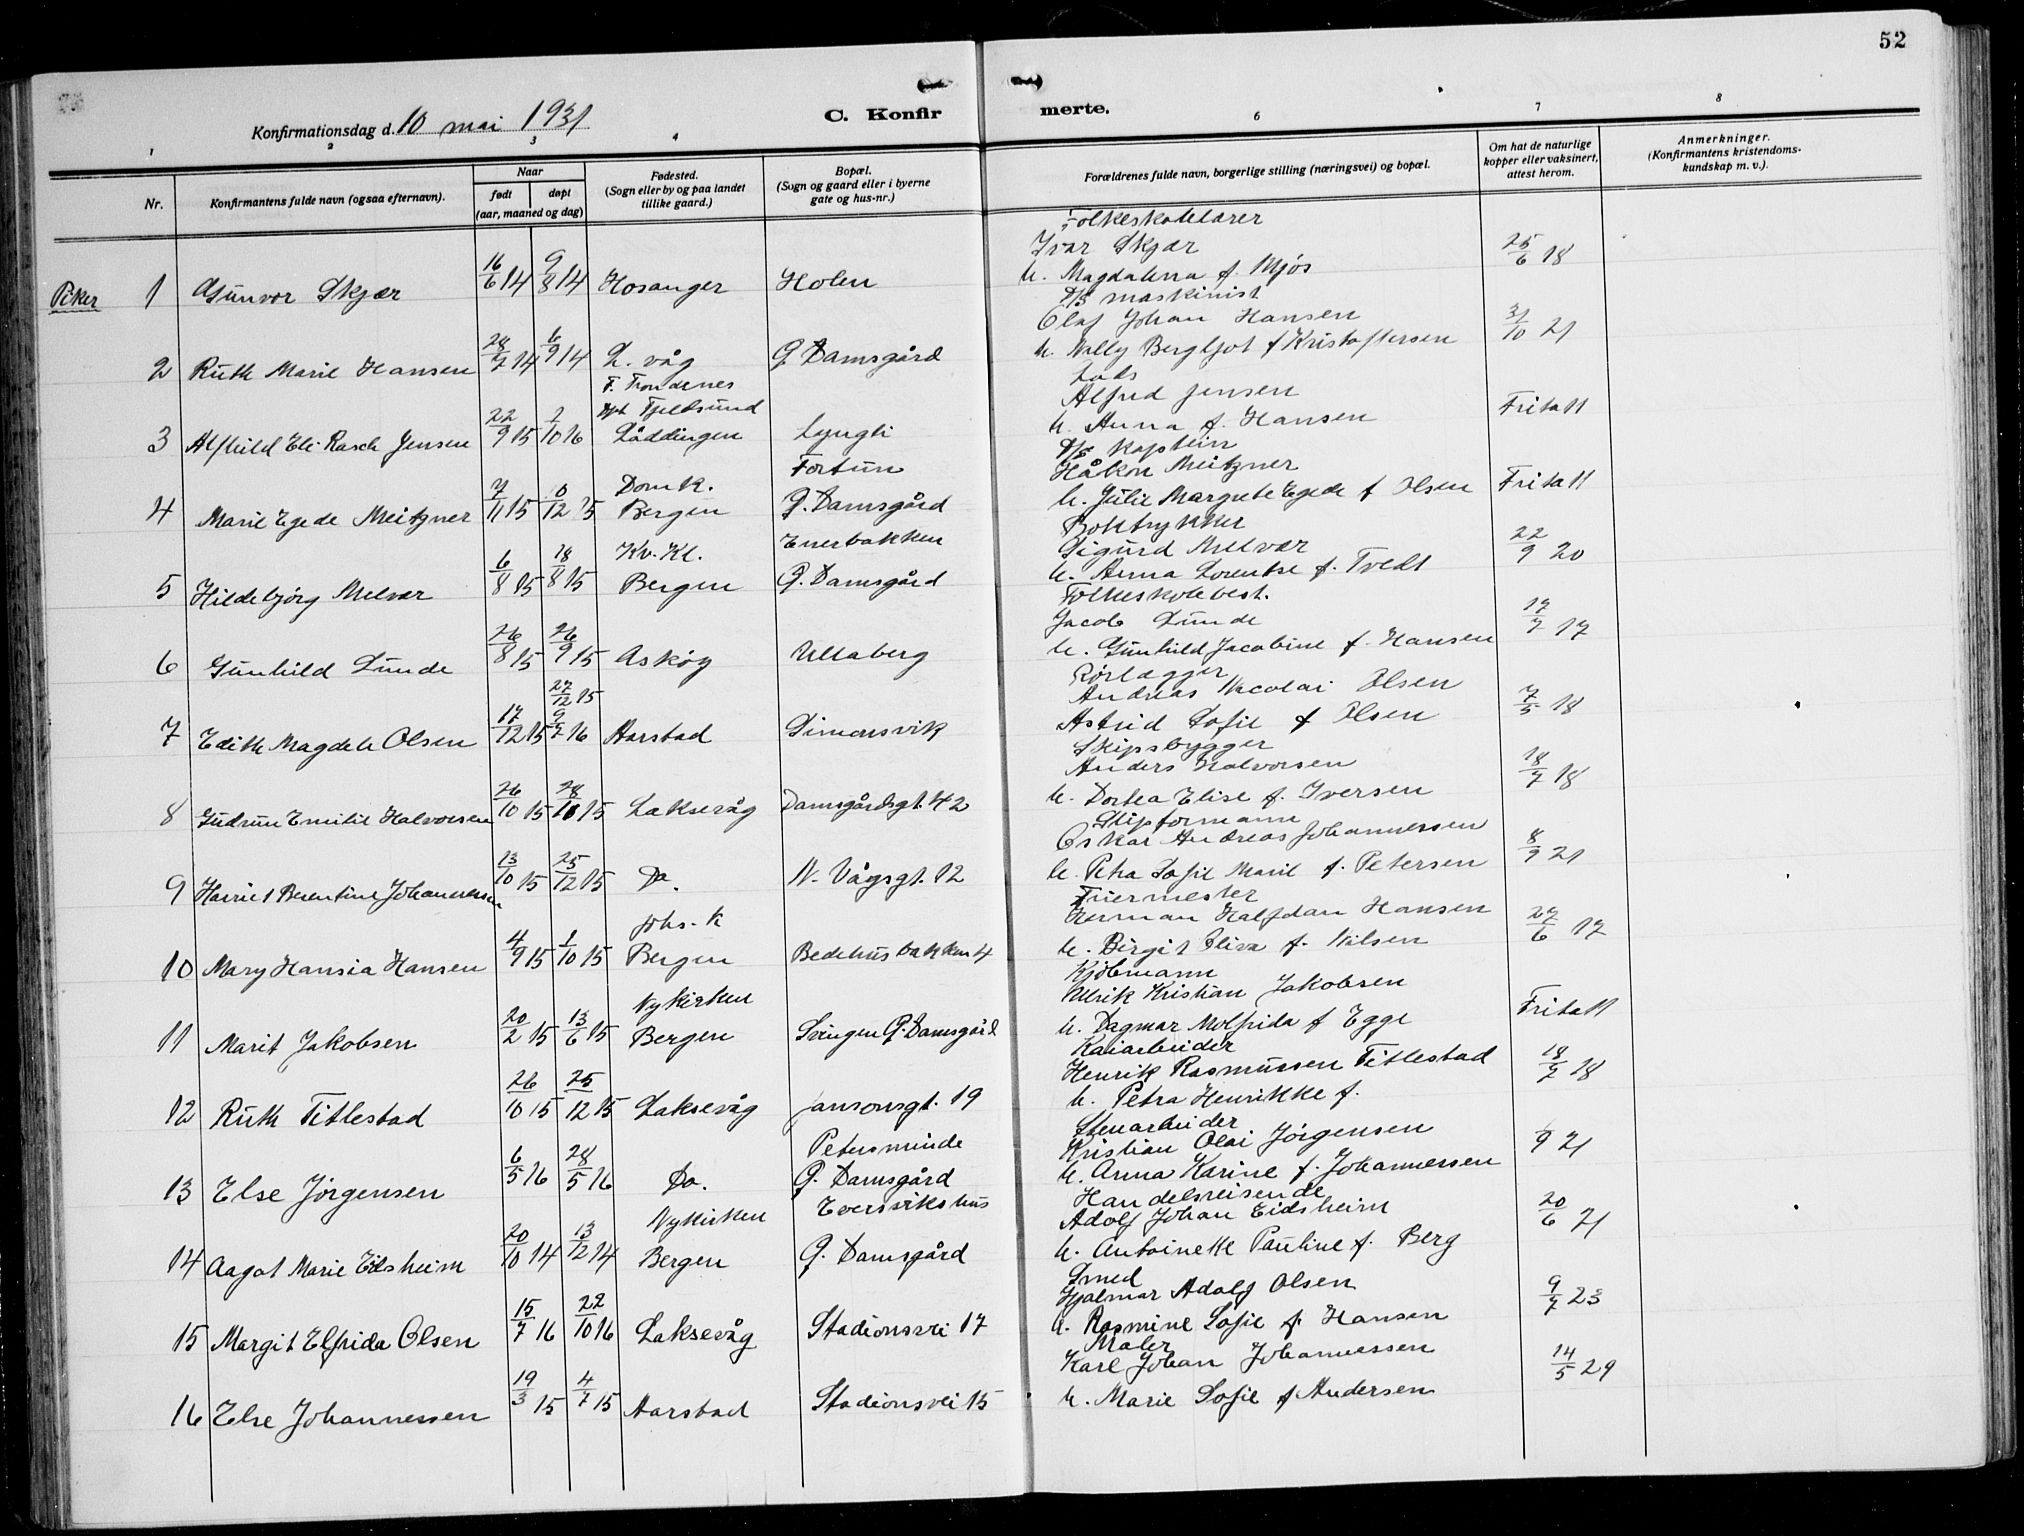 52
Konfirmationsdag d. 10 mai 1931
C. Konfirmerte.
1 2 3 4 6 7 8
Nr.
Konfirmantens fulde navn (ogsaa efternavn).
Naar
født døpt
(aar, maaned og dag)
Fødested.
(Sogn eller by og paa landet
tillike gaard.)
Bopæl.
(Sogn og gaard eller i byerne
gate og hus-nr.)
Forældrenes fulde navn, borgerlige stilling (næringsvei) og bopæl.
Om hat de naturlige
kopper eller vaksinert,
attest herom.
Anmerkninger.
(Konfirmantens kristendoms-
kundskap m. v.).
Folkeskolelærer
Ivar Skjær
Piker 1 Gunvor Skjær 16/6 14 9/8 14 Hosanger Holen h. Magdalena f. Mjøs 25/6 18
D/S maskinist
Olaf Johan Hansen
2 Ruth Marie Hansen 28/7 14 6/9 14 L. våg G. Damsgård h. Nelly Bergljot f Kristoffersen 31/10 21
F. Trondenes
Lods
døpt Fjeldsund
Alfred Jensen
3 Alfhild Eli Rasch Jensen 22/9 15 1/10 16 Løddingen Lyngli h. Anna f. Hansen Frita11
D/S kaptein
Fortun
Håkon Meitzner
Domk.
4 Marie Egede Meitzner 7/11 15 /12 15 Bergen G. Damsgård h. Julie Margrete Egede f Olsen Frita11
Boktrykker
Enerbakken
Kv. Kl.
Sigurd Melvær
5 Hildebjørg Melvær 6/8 15 18/8 15 Bergen G. Damsgård h. Anna Lorentse f. Tvedt 22/9 20
Folkeskolebest.
Jacob Lunde
6 Gunhild Lunde 26/8 15 26/9 15 Askøy Ullaberg h. Gunhild Jacobine f. Hansen 17/7 17
Rørlægger
27/12 15
Andreas Nicolai Olsen
7 Edith Magdele Olsen 17/12 15 9/7 16 Aarstad Simonsvik Astrid Sofie f Olsen 7/5 18
Skipsbygger
Anders Halvorsen
8 Gudrun Emilie Halvorsen 26/10 15 28/10 15 Laksevåg Damsgårdsgt. 42 h. Dortea Elise f. Iversen 18/7 18
Skipformann
Oskar Andreas Johannessen
9 Harriet Berentine Johannessen 13/10 15 25/12 15 Do. N. Vågsgt. 12 h. Petra Sofie Marie f. Petersen 8/9 21
Fuermester
Johs. K
Herman Halfdan Hansen
10 Mary Hansia Hansen 4/9 15 1/10 15 Bergen Bedehusbakken 4 h. Birgit Oliva f. Nilsen 27/6 17
Kjøbmann
Nykirken
Ulrik Kristian Jakobsen
11 Marit Jakobsen 20/2 15 13/6 15 Bergen Svingen G. Damsgård h. Dagmar Molfrida f Egge Frita11
Kaiarbeider
Henrik Rasmussen Titlestad
12 Ruth Titlestad 26/10 15 25/12 15 Laksevåg Jansonsgt. 19 h. Petra Henrikke f. 18/7 18
Stenarbeider
Petersminde
Kristian Olai Jørgensen
13 Else Jørgensen 6/5 16 28/5 16 Do. G. Damsgård h. Anna Karine f. Johannessen /9 21
Handelsreisende
Nykirken Eversvikshus
Adolf Johan Eidsheim
14 Aagot Marie Eidsheim 20/10 14 13/12 14 Bergen G. Damsgård h. Antoinette Pauline f. Berg 20/6 21
Smed
Hjalmar Adolf Olsen
15 Margit Elfrida Olsen 15/7 16 22/10 16 Laksevåg Stadionsvei 17 h. Rasmine Sofie f. Hansen 9/7 23
Maler
Karl Johan Johannessen
16 Else Johannessen 19/3 15 4/7 15 Aarstad Stadionsvei 15 h. Marie Sofie f Andersen 14/5 29